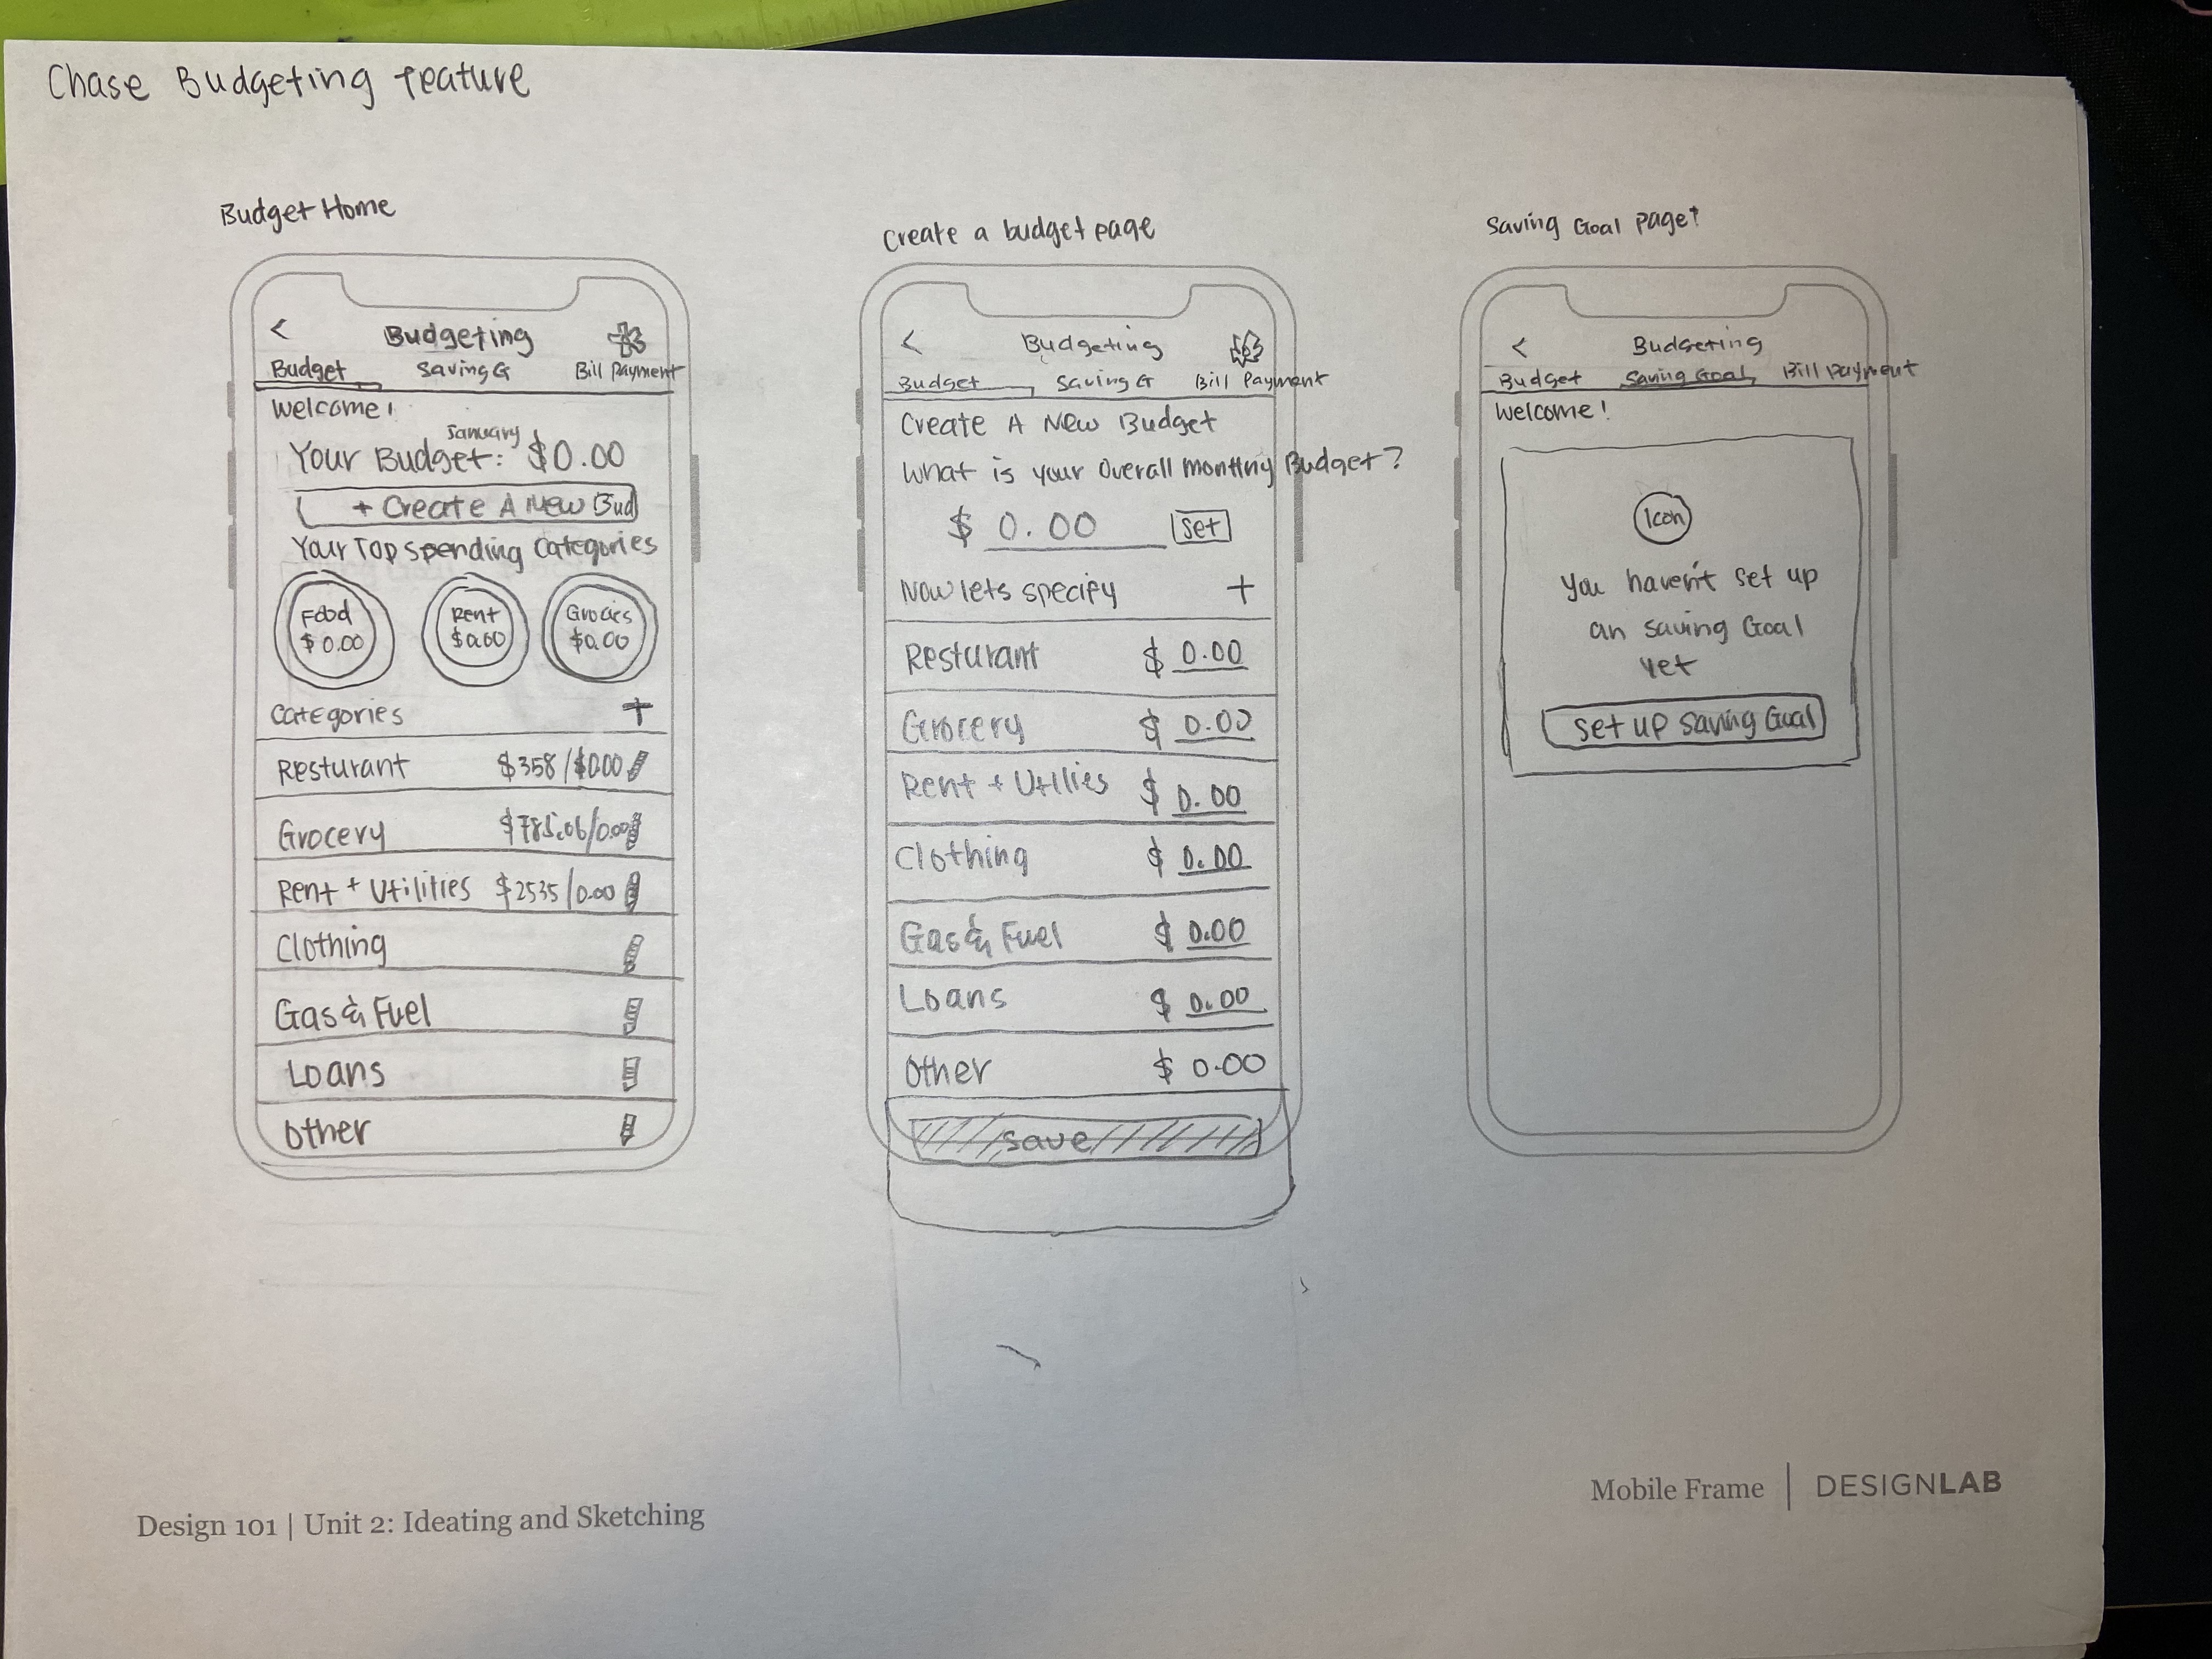 Chase Budgeting feature
Budget Home
< Budgeting
Budget Saving G Bill Payment
Welcome!
January
Your Budget: $0.00
+ Create A New Bud
Your Top Spending Categories
Food
$0.00
Rent
$0.00
$0.00
Categories +
Resturant $358/$0.00
Grocery $785.06/0.00
Rent + Utilities $2535/0.00
Clothing
Gas & Fuel
Loans
Other
Create a budget page
< Budgeting
Budget Saving G Bill Payment
Create A New Budget
What is your Overall Monthly Budget?
$ 0.00 Set
Now lets specify +
Resturant $ 0.00
Grocery $ 0.00
Rent + Utilies $ 0.00
Clothing $ 0.00
Gas & Fuel $ 0.00
Loans $ 0.00
Other $ 0.00
Save
Saving Goal page
< Budgeting
Budget Saving Goal Bill Payment
Welcome!
Icon
You haven't set up
an saving Goal
yet
Set up Saving Goal
Design 101 | Unit 2: Ideating and Sketching
Mobile Frame | DESIGNLAB